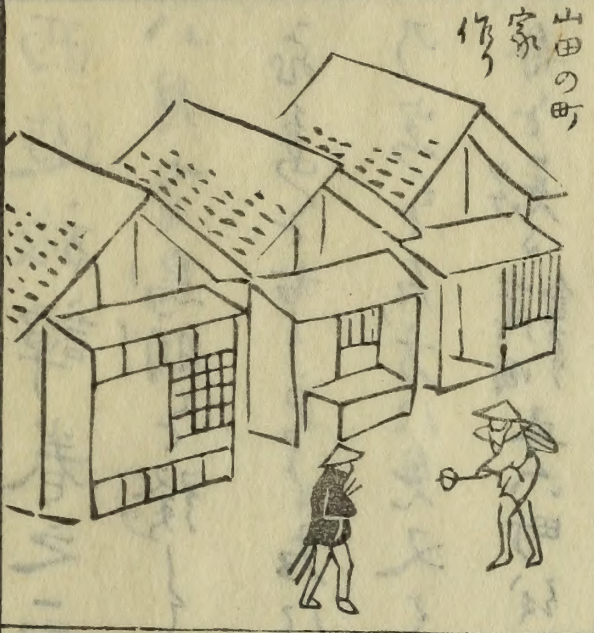 山田の町
家
作り